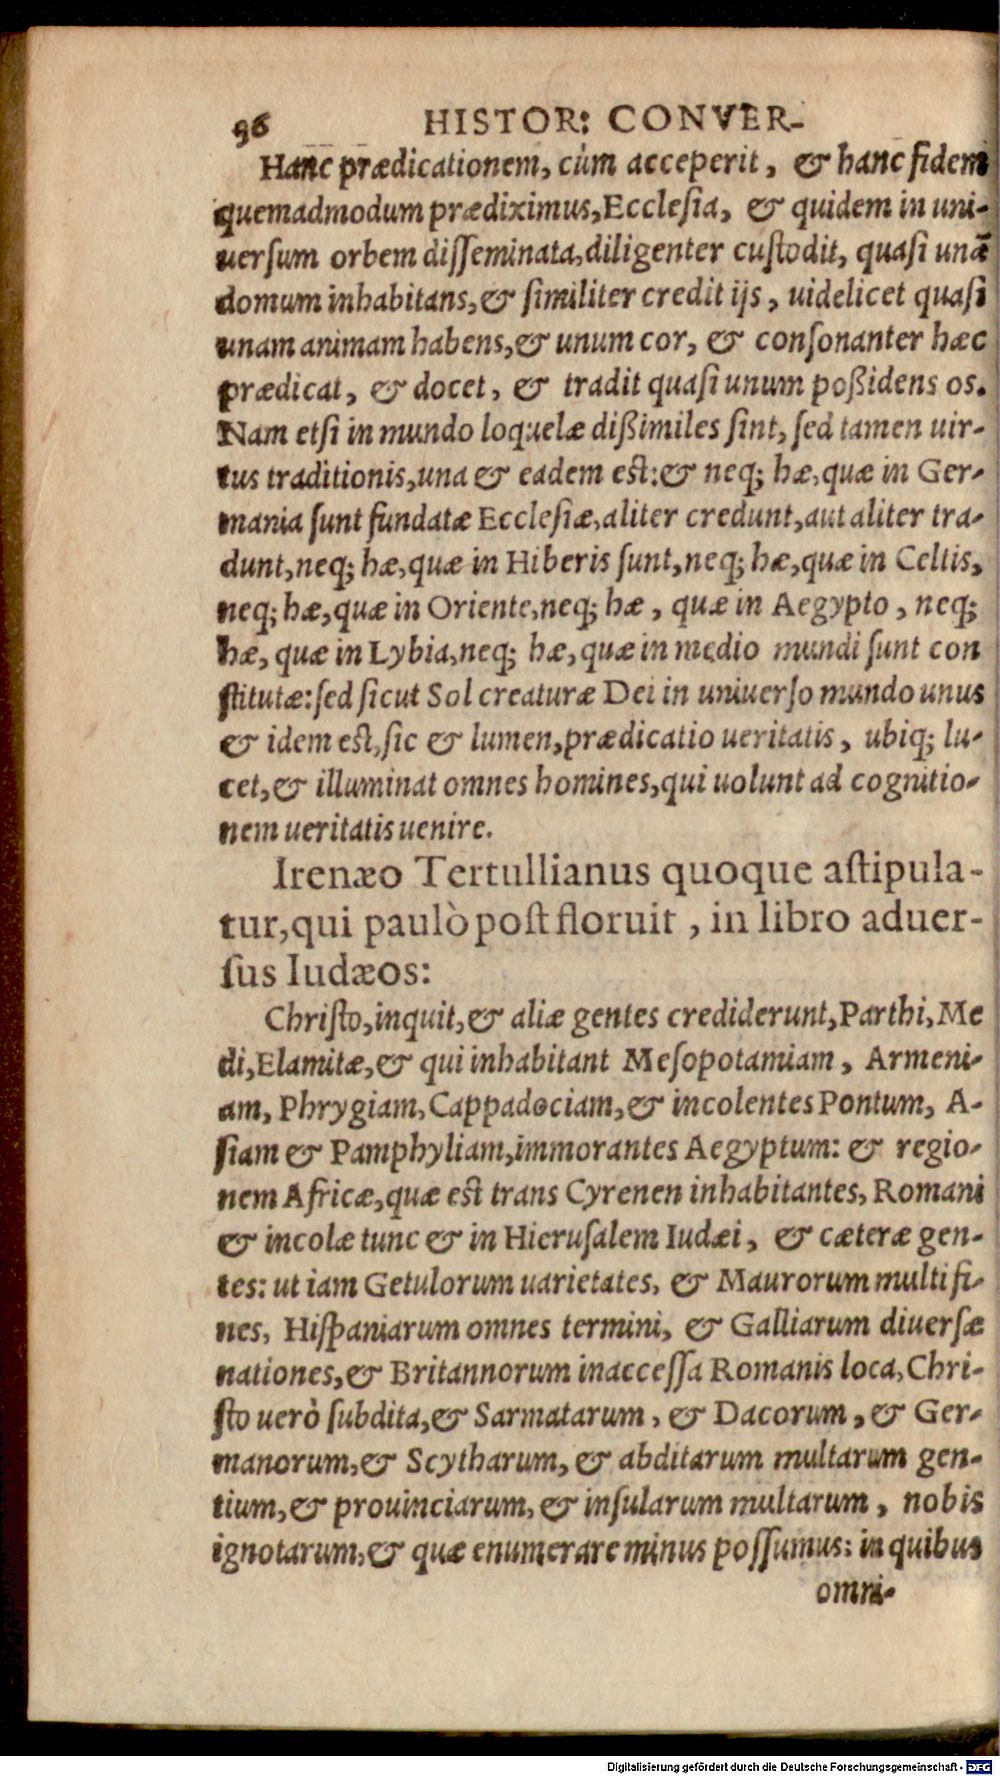 96 HISTOR: CONVER-
Hanc prædicationem, cùm acceperit, & hanc fidem
quemadmodum prædiximus, Ecclesia, & quidem in uni-
uersum orbem disseminata, diligenter custodit, quasi unã
domum inhabitans, & similiter credit ijs, uidelicet quasi
unam animam habens, & unum cor, & consonanter hæc
prædicat, & docet, & tradit quasi unum poßidens os.
Nam etsi in mundo loquelæ dißimiles sint, sed tamen uir-
tus traditionis, una & eadem est: & neq; hæ, quæ in Ger-
mania sunt fundatæ Ecclesiæ, aliter credunt, aut aliter tra-
dunt, neq; hæ, quæ in Hiberis sunt, neq; hæ, quæ in Celtis,
neq; hæ, quæ in Oriente, neq; hæ, quæ in Aegypto, neq;
hæ, quæ in Lybia, neq; hæ, quæ in medio mundi sunt con
stitutæ: sed sicut Sol creaturæ Dei in uniuerso mundo unus
& idem est, sic & lumen, prædicatio ueritatis, ubiq; lu-
cet, & illuminat omnes homines, qui uolunt ad cognitio-
nem ueritatis uenire.
Irenæo Tertullianus quoque astipula-
tur, qui paulò post floruit, in libro aduer-
sus Iudæos:
Christo, inquit, & aliæ gentes crediderunt, Parthi, Me
di, Elamitæ, & qui inhabitant Mesopotamiam, Armeni-
am, Phrygiam, Cappadociam, & incolentes Pontum, A-
siam & Pamphyliam, immorantes Aegyptum: & regio-
nem Africæ, quæ est trans Cyrenen inhabitantes, Romani
& incolæ tunc & in Hierusalem Iudæi, & cæteræ gen-
tes: ut iam Getulorum uarietates, & Maurorum multi fi-
nes, Hispaniarum omnes termini, & Galliarum diuersæ
nationes, & Britannorum inaccessa Romanis loca, Chri-
sto uerò subdita, & Sarmatarum, & Dacorum, & Ger-
manorum, & Scytharum, & abditarum multarum gen-
tium, & prouinciarum, & insularum multarum, nobis
ignotarum, & quæ enumerare minus possumus: in quibus
omni-
Digitalisierung gefördert durch die Deutsche Forschungsgemeinschaft - DFG